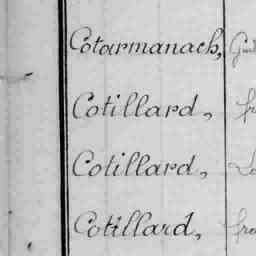 Cotarmanach,
Cotillard,
Cotillard,
Cotillard,